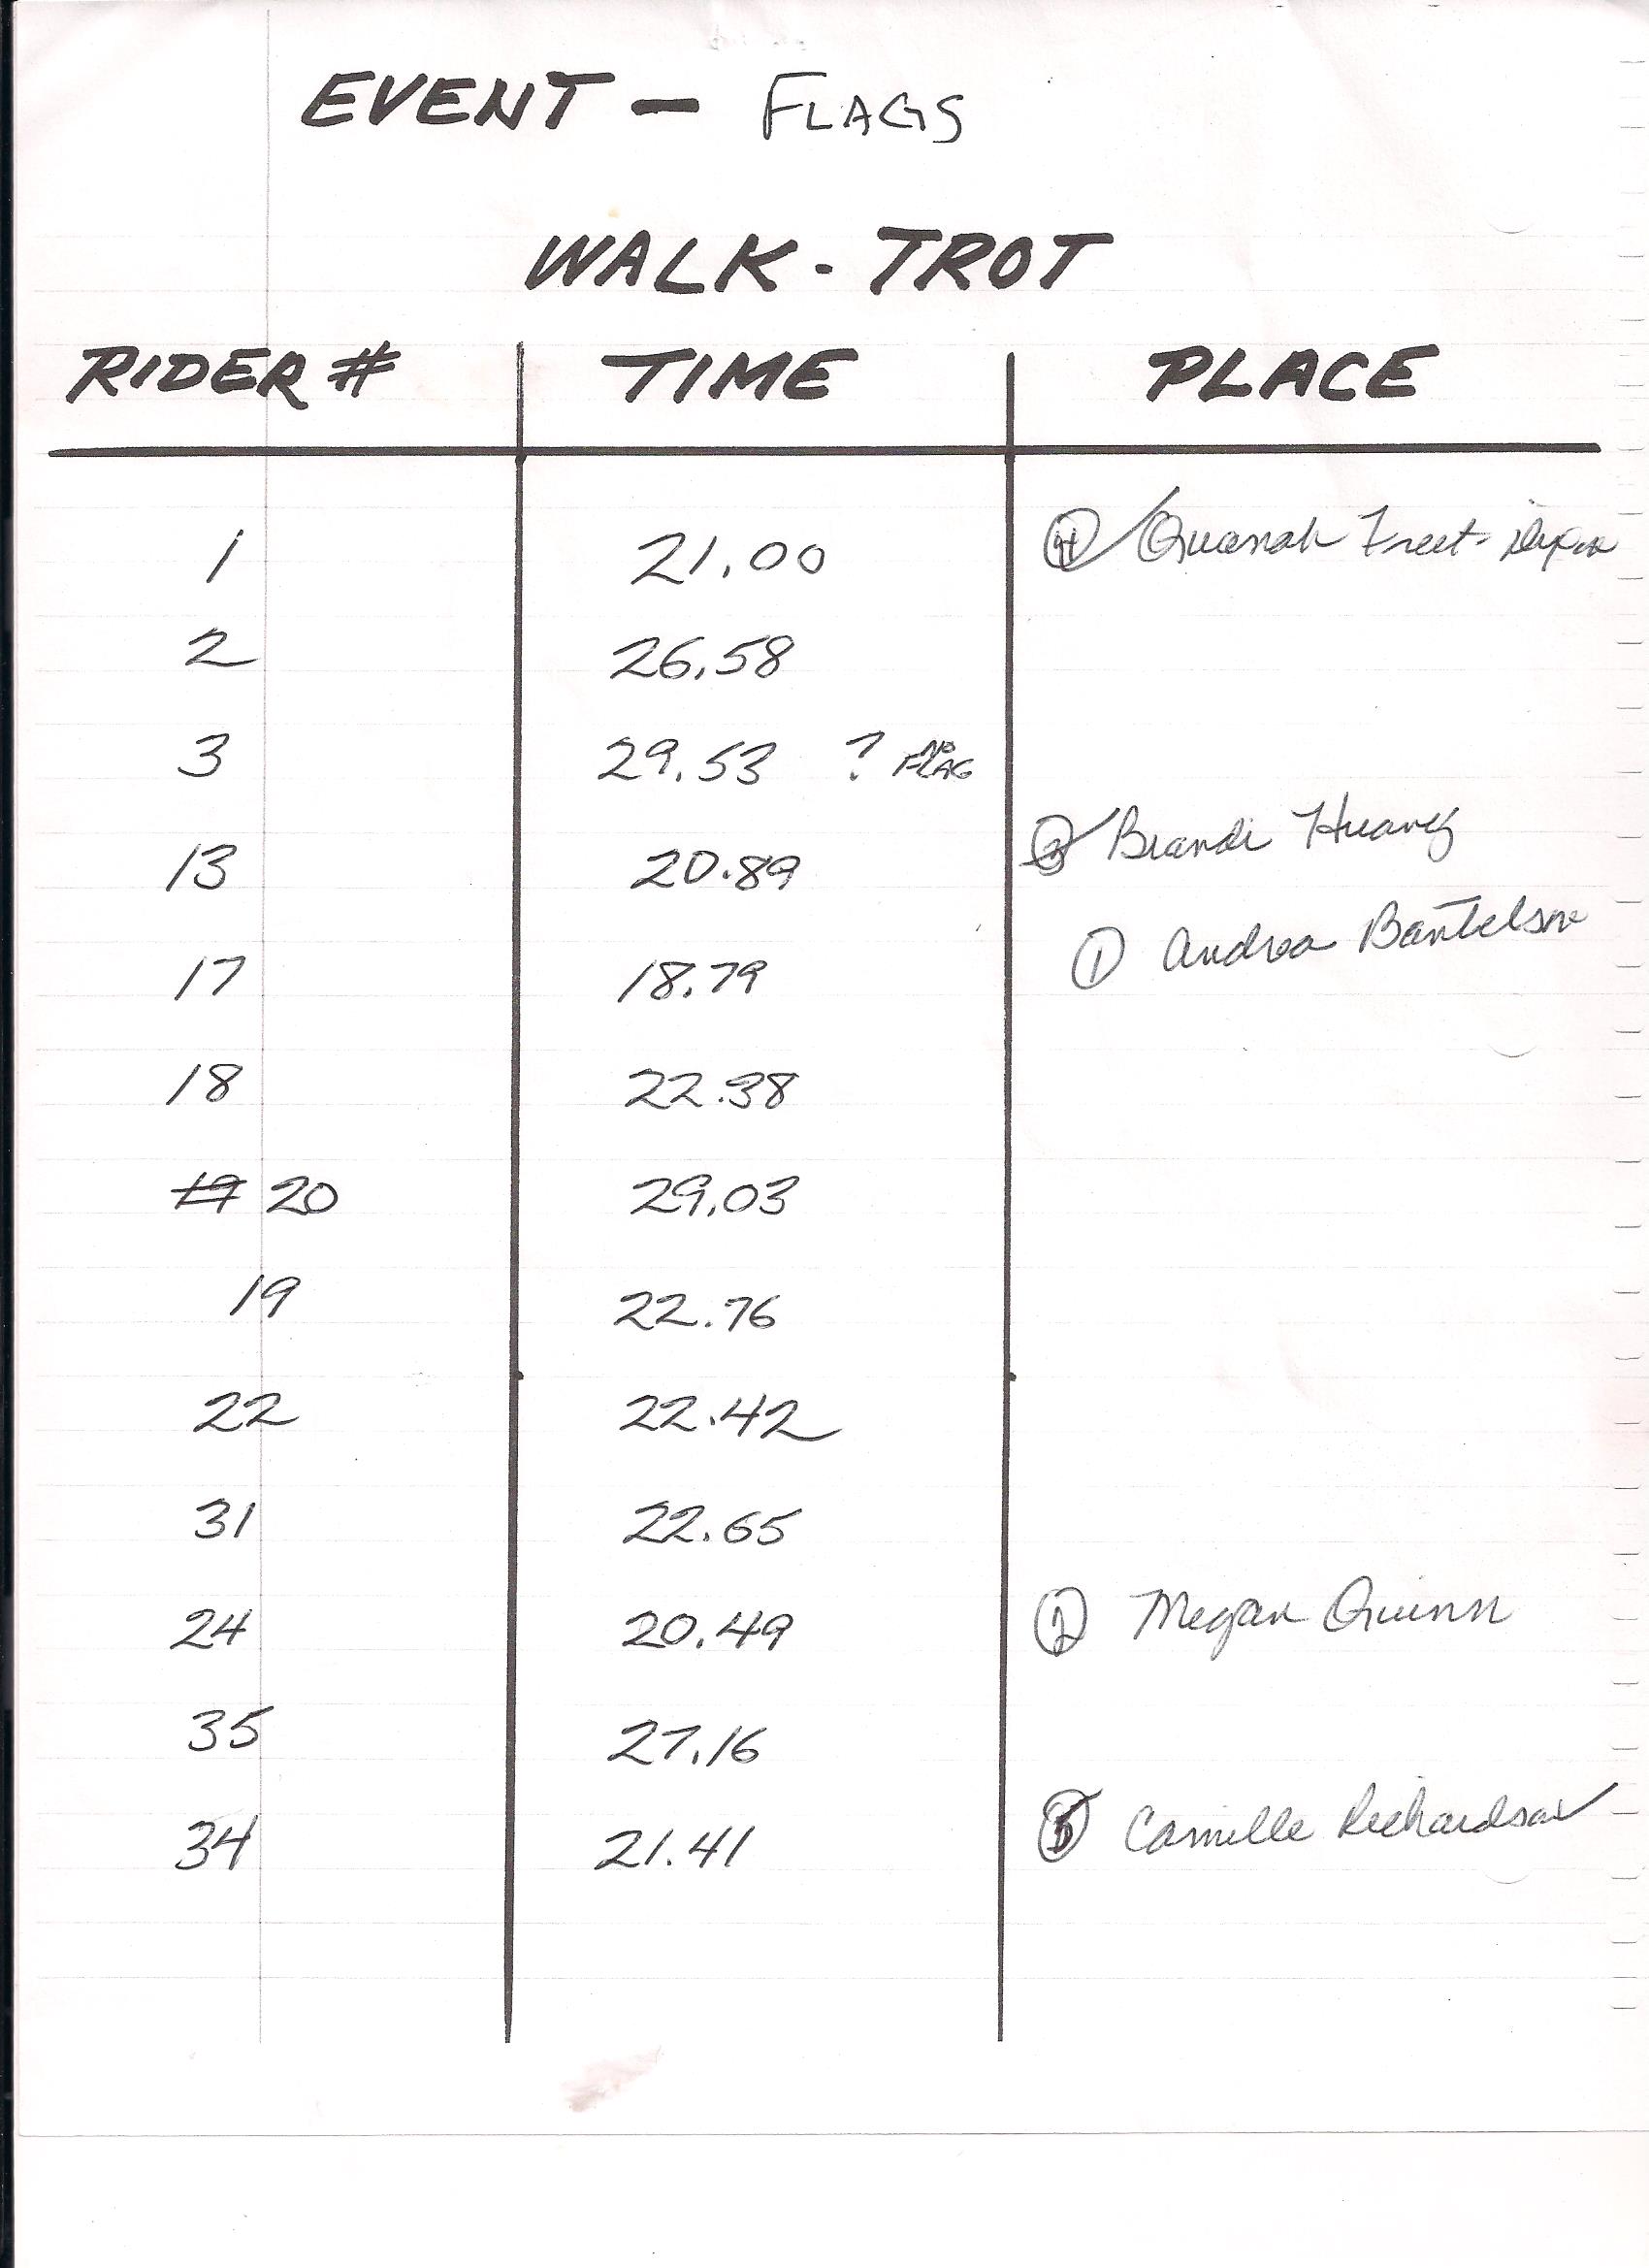 EVENT — FLAGS
WALK - TROT
RIDER # TIME PLACE
1 21.00 4 Quanah Freet-
2 26.58
3 29.53 ? NO FLAG
13 20.89 3 Brandi Huang
17 18.79 1 Andrea Bantelson
18 22.38
19 20 29.03
19 22.76
22 22.42
31 22.65
24 20.49 2 Megan Quinn
35 27.16
34 21.41 5 Camille Richardson